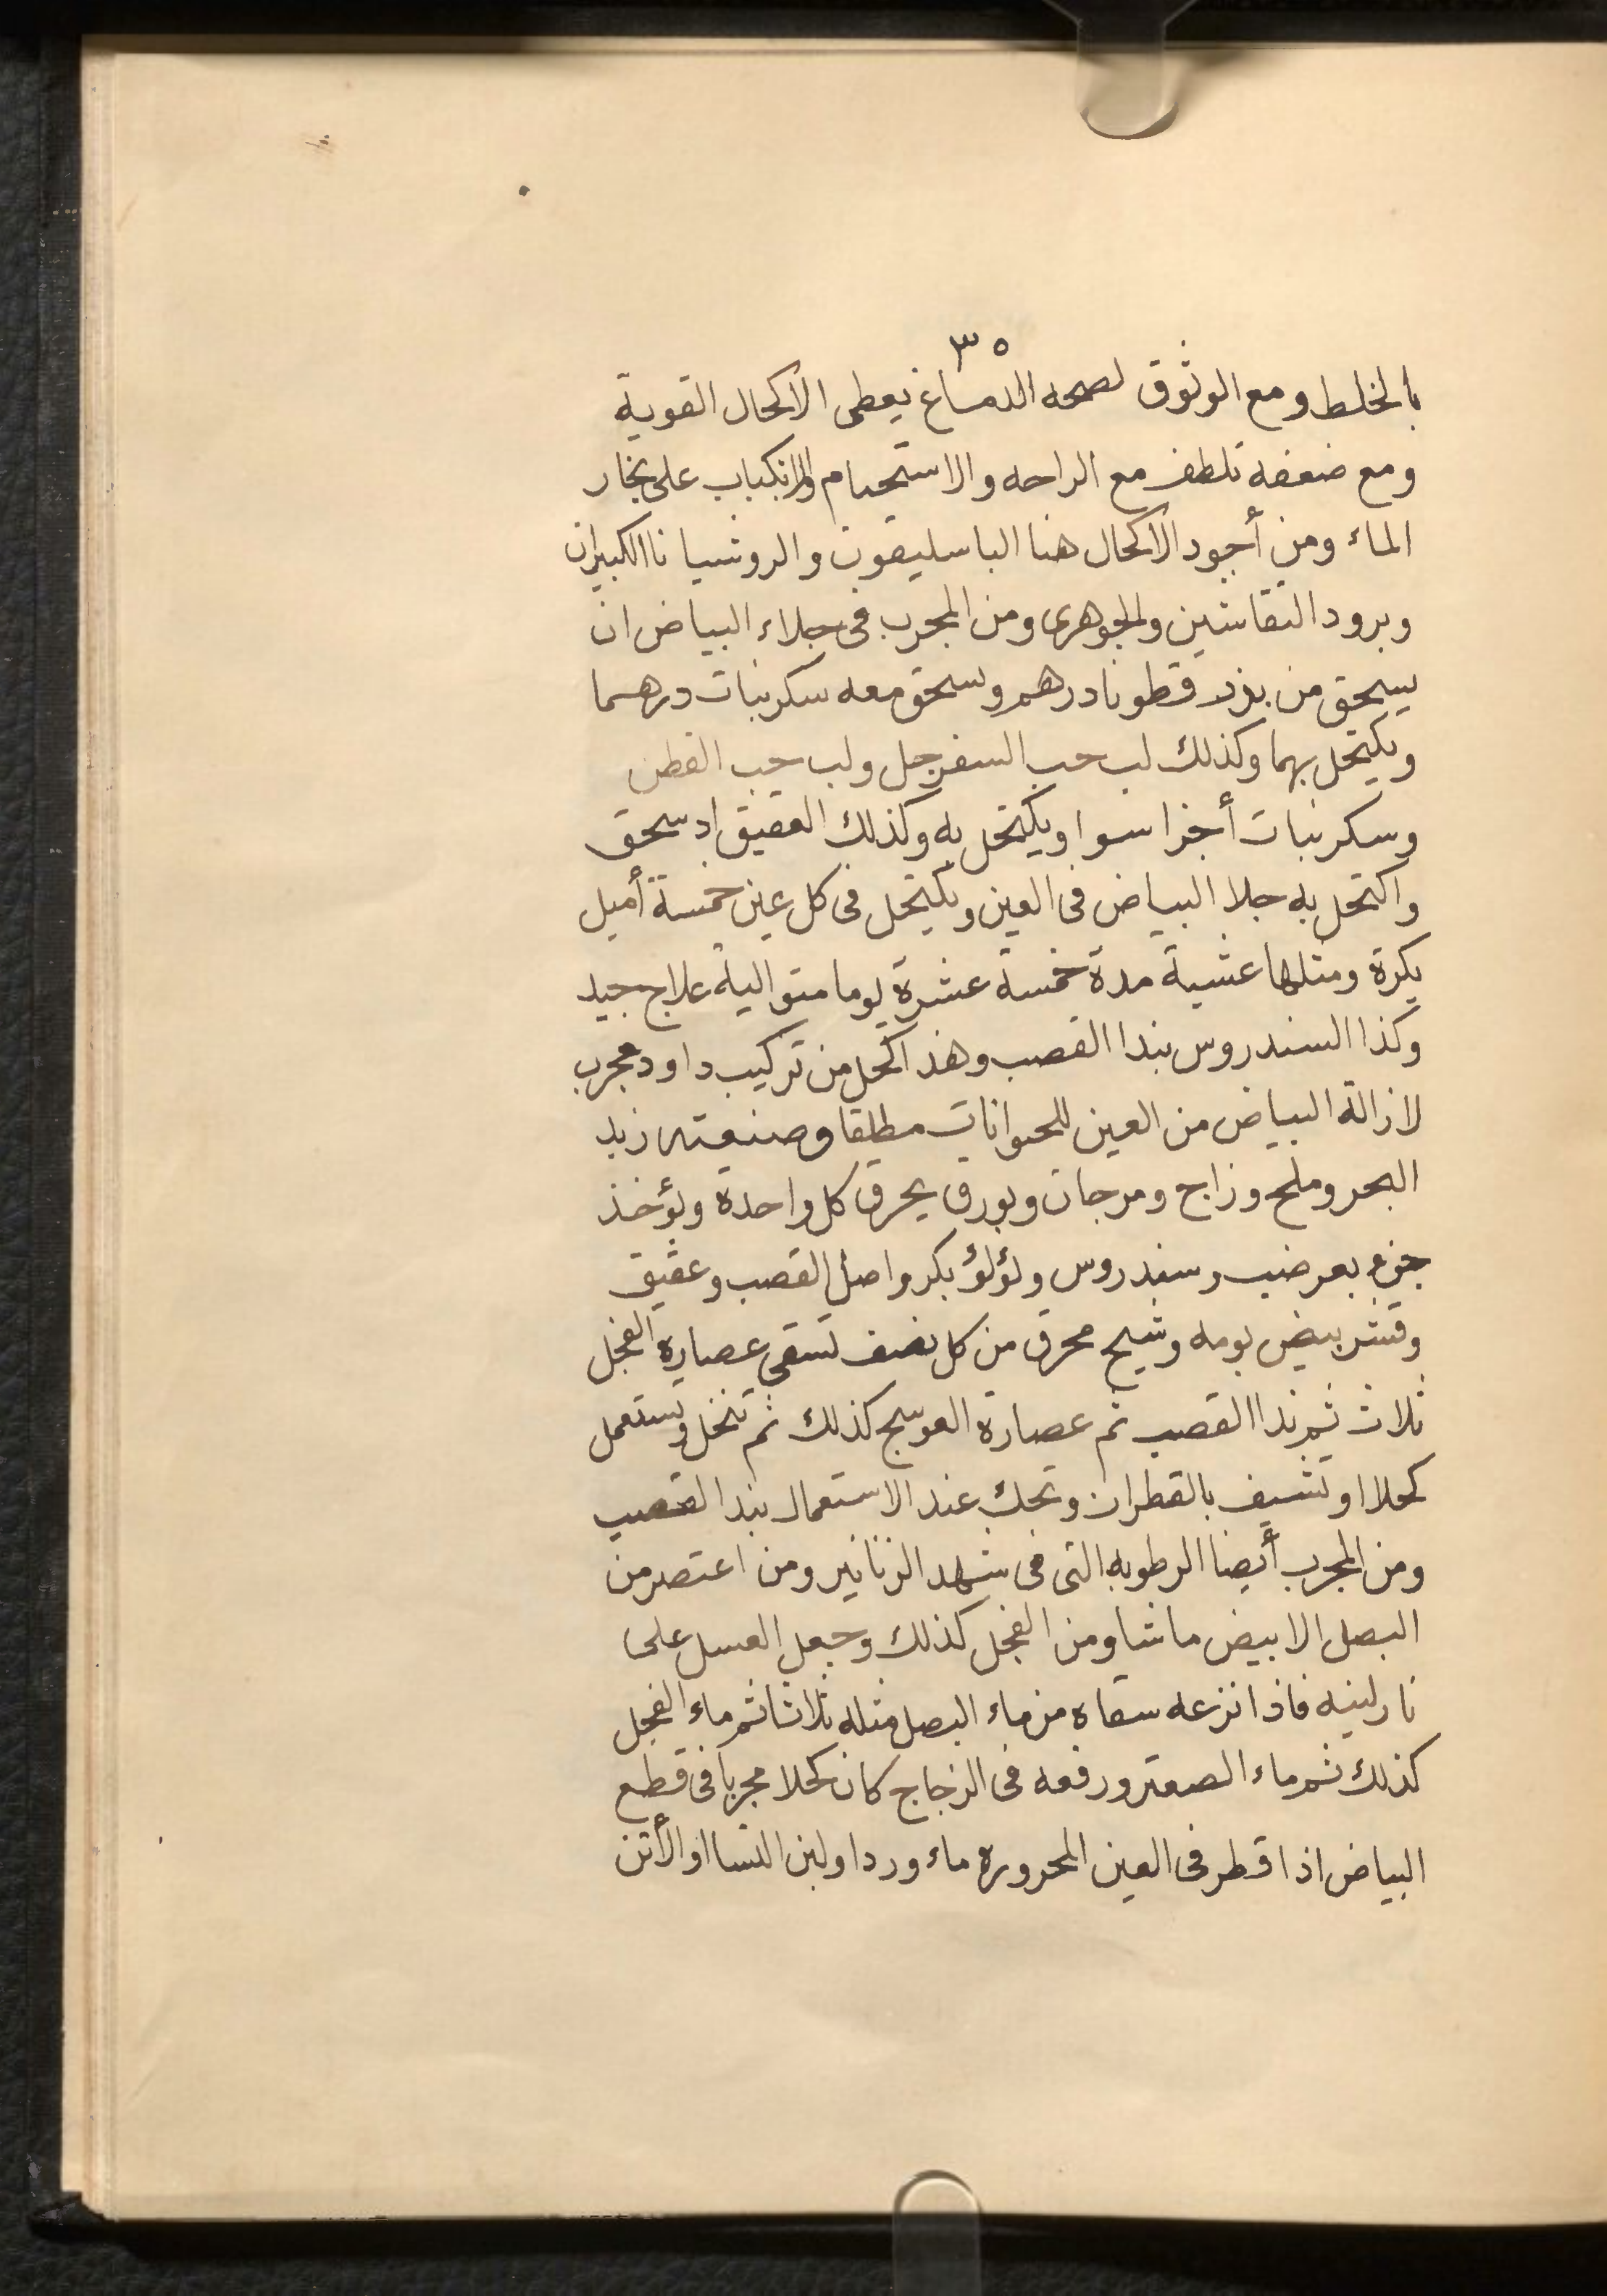 ٣٥
بالخلط ومع الوثوق لصحه الدماغ يعطى الاكحال القوية
ومع ضعفه تلطف مع الراحه والاستحمام والانكباب على بخار
الماء ومن أجود الاكحال هنا الباسليقون والروشيانا الكبيران
وبرود النقاشين والجوهرى ومن المجرب فى جلاء البياض ان
يسحق من بزر قطونا درهم وسحق معه سكر نبات درهما
ويكتحل بهما وكذلك لب حب السفرجل ولب حب القطن
وسكر نبات أجزا سوا ويكتحل به وكذلك العقيق اد سحق
واكتحل به جلا البياض فى العين ويكتحل فى كل عين خمسة أميل
بكرة ومثلها عشية مدة خمسة عشرة يوما متوالية علاج جيد
وكذا السندروس بندا القصب وهذ اكحل من تركيب داود مجرب
لازالة البياض من العين للحيوانات مطلقا وصنعته زبد
البحر وملح وزاج ومرجان وبورق يحرق كل واحدة ويؤخذ
جزء بعر ضب وسندروس ولؤلؤ بكر واصل القصب وعقيق
وقشر بيض بومه وشيح محرق من كل نصف تسقى عصاره الفجل
ثلاث ثم ندا القصب ثم عصارة العوسج كذلك ثم تنخل وتستعمل
كحلا او تشيف بالقطران وتحك عند الاستعمال بندا القصب
ومن المجرب أيضا الرطوبه التى فى شهد الزنانير ومن اعتصر من
البصل الابيض ماشا ومن الفجل كذلك وجعل العسل على
نار لينه فاذا نزعه سقاه من ماء البصل مثله ثلاثا ثم ماء الفجل
كذلك ثم ماء الصعتر ورفعه فى الزجاج كان كحلا مجربا فى قطع
البياض اذا قطر فى العين المحروره ماء ورد او لبن النسا او الأتن